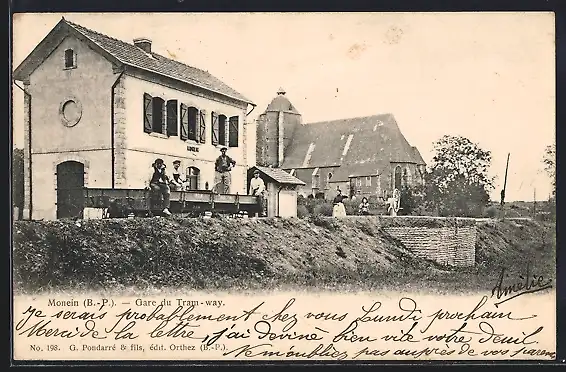 Monein (B.-P.) — Gare du Tram-way.
Amélie
Je serais probablement chez vous Lundi prochain
Merci de la lettre, j'ai deviné bien vite votre deuil.
No. 198. G. Pondarré & fils, édit. Orthez (B.-P.).
N'em'oubliez pas auprès de vos parens